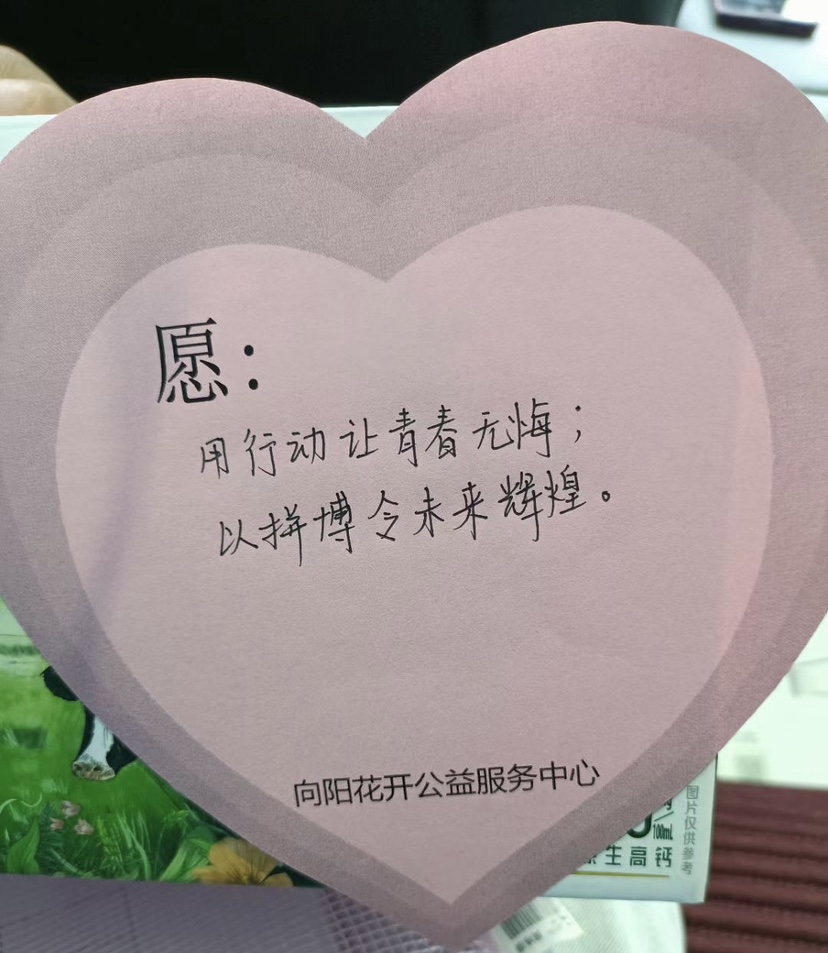 愿：
用行动让青春无悔；
以拼博令未来辉煌。
向阳花开公益服务中心
100mL
生高钙
图片仅供参考